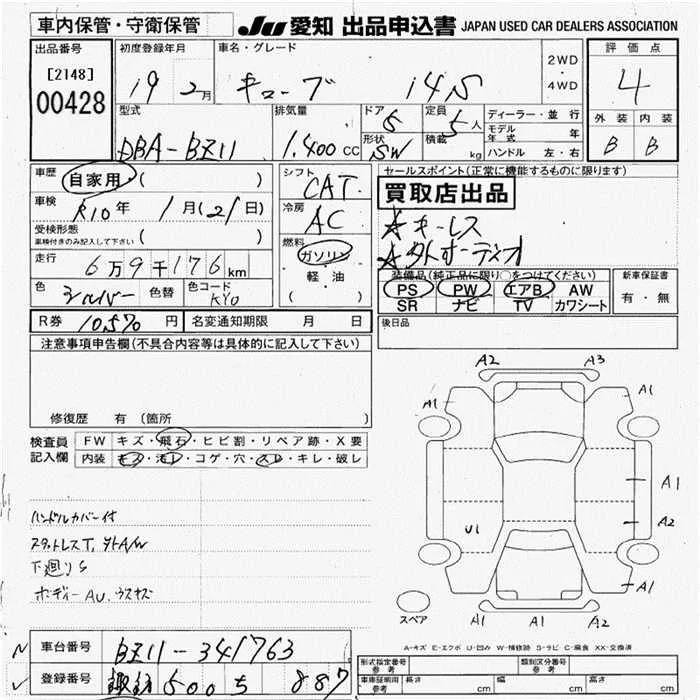 車内保管・守衛保管
JU 愛知 出品申込書 JAPAN USED CAR DEALERS ASSOCIATION
出品番号
[2148]
00428
初度登録年月
19 2月
車名・グレード
キューブ 14S
2WD
・
4WD
評価点
4
外装 内装
B B
型式
DBA-BZ11
排気量
1.400cc
ドア
5
形状
SW
定員
5人
積載
kg
ディーラー・並行
モデル年式 年
ハンドル 左・右
車歴
自家用 ( )
車検
R10年 1月(21日)
受検形態
車検付きのみ記入して下さい ( )
走行
6万9千176km
色
シルバー
色替
色コード
KY0
シフト
CAT
冷房
AC
燃料
ガソリン
軽・油
( )
セールスポイント(正常に機能するものに限ります)
買取店出品
☆キーレス
☆外オーディオ
装備品(純正品に限り○をつけてください)
PS PW エアB AW
SR ナビ TV カワシート
新車保証書
有・無
R券 10,570円
名変通知期限 月 日
後日品
注意事項申告欄(不具合内容等は具体的に記入して下さい)
修復歴 有 (箇所
検査員記入欄
FW キズ・飛石・ヒビ割・リペア跡・X要
内装 キズ・汚レ・コゲ・穴・スレ・キレ・破レ
ハンドルカバー付
スタットレスT, 外A/W
下廻りS
ボディー AU. ウスキズ
A2 A3
A1 A1
A1
A2
U1
A1
A1 A1 A2
スペア
A-キズ E-エクボ U-凹み W-補修跡 S-サビ C-腐食 XX-交換済
車台番号
BZ11-341763
登録番号
500 ち 887
形式指定番号 参考
類別区分番号 参考
車庫証明用 参考
長さ cm
幅 cm
高さ cm